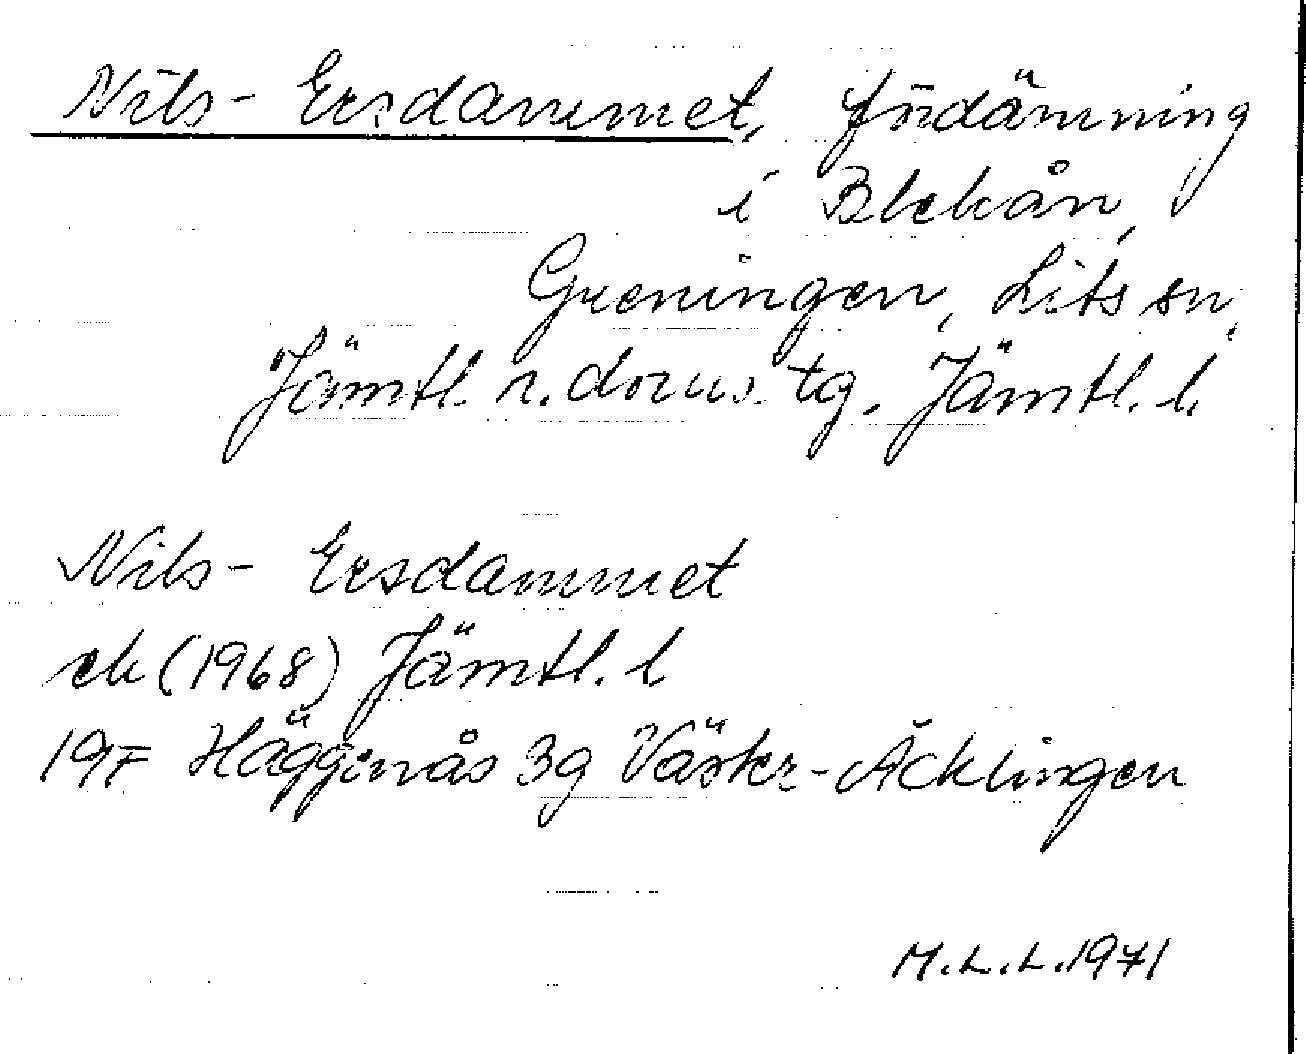 Nils-Ersdammet, fördämning
i Blekån,
Greningen, Lits sn,
Jämtl. n. doms. tg. Jämtl. l.
Nils-Ersdammet
ek (1968) Jämtl. l
19F Häggenås 3g Väster-Äcklingen
M.L.L. 1971